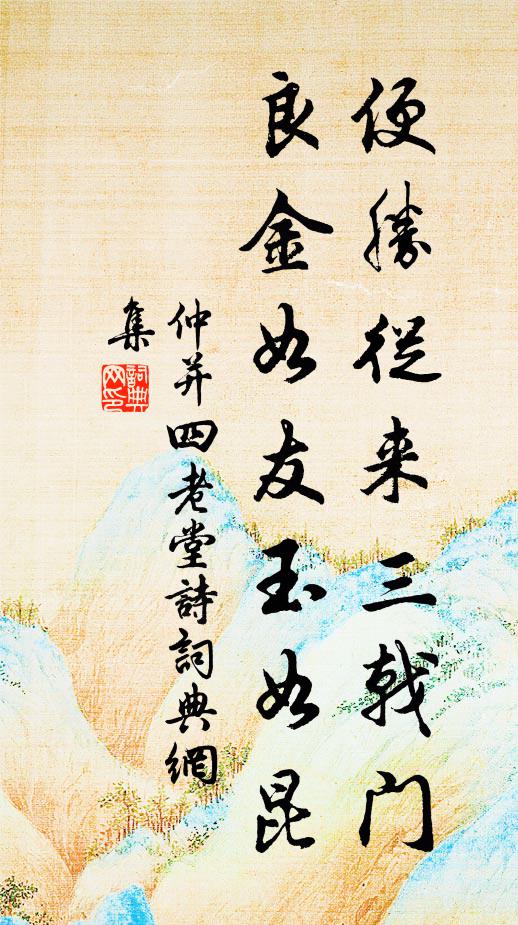 便勝從来三戟門
良金如友玉如昆
仲并四老堂詩詞典網
集
詞典
网印